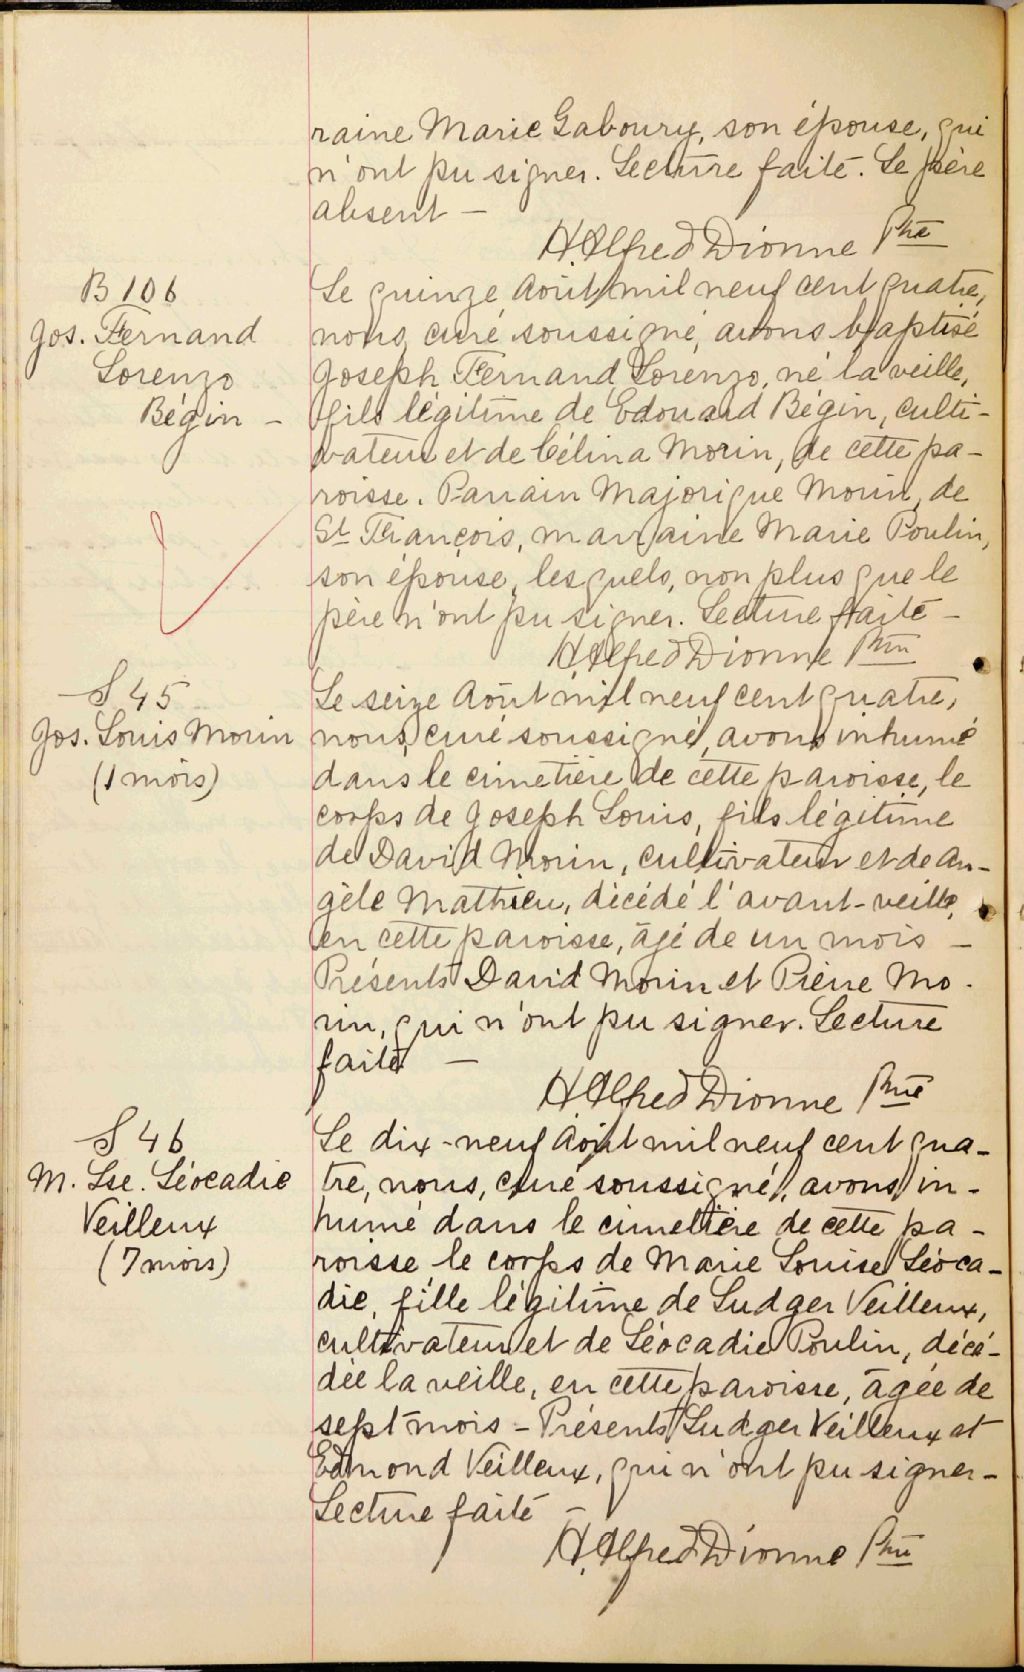 raine Marie Gaboury, son épouse, qui
n'ont pu signer. Lecture faite. Le père
absent —
H. Alfred Dionne Ptre
B 106
Jos. Fernand
Lorenzo
Bégin —
Le quinze Août mil neuf cent quatre,
nous, curé soussigné, avons baptisé
Joseph Fernand Lorenzo, né la veille,
fils légitime de Edouard Bégin, culti-
vateur et de Célina Morin, de cette pa-
roisse. Parrain Majorique Morin, de
St François, marraine Marie Poulin,
son épouse, lesquels, non plus que le
père n'ont pu signer. Lecture faite —
H. Alfred Dionne Ptre
S 45
Jos. Louis Morin
(1 mois)
Le seize Août mil neuf cent quatre,
nous, curé soussigné, avons inhumé
dans le cimetière de cette paroisse, le
corps de Joseph Louis, fils légitime
de David Morin, cultivateur et de An-
gèle Mathieu, décédé l'avant-veille,
en cette paroisse, âgé de un mois —
Présents David Morin et Pierre Mo-
rin, qui n'ont pu signer. Lecture
faite —
H. Alfred Dionne Ptre
S 46
M. Lse. Léocadie
Veilleux
(7 mois)
Le dix-neuf Août mil neuf cent qua-
tre, nous, curé soussigné, avons in-
humé dans le cimetière de cette pa-
roisse le corps de Marie Louise Léoca-
die, fille légitime de Ludger Veilleux,
cultivateur et de Léocadie Poulin, décé-
dée la veille, en cette paroisse, âgée de
sept mois — Présents Ludger Veilleux et
Edmond Veilleux, qui n'ont pu signer —
Lecture faite —
H. Alfred Dionne Ptre